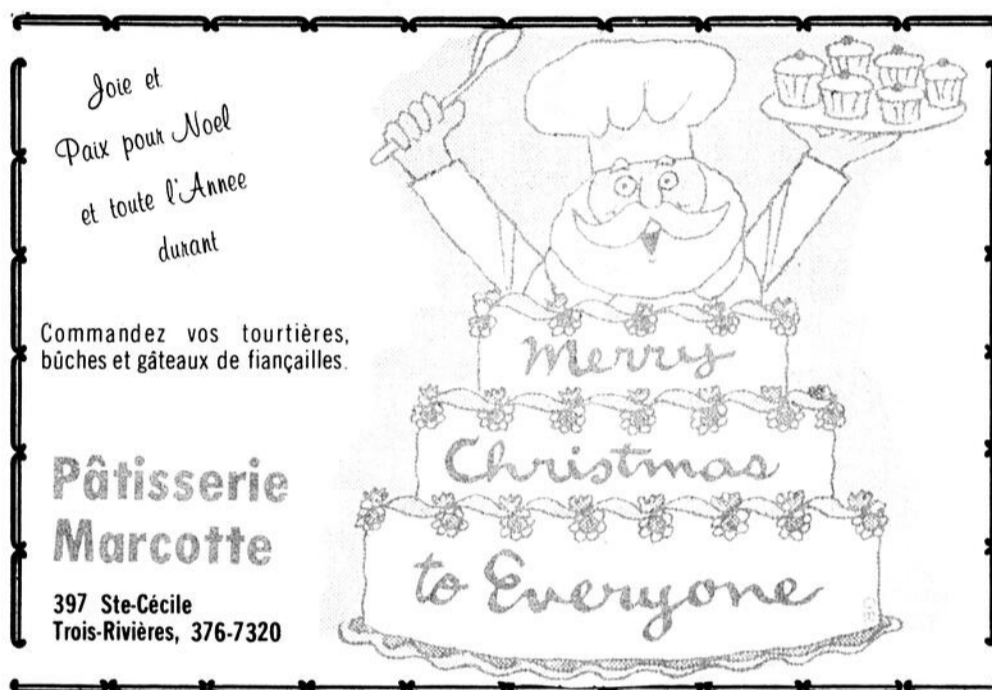 Joie et
Paix pour Noel
et toute l'Annee
durant
Commandez vos tourtières,
bûches et gâteaux de fiançailles.
Pâtisserie
Marcotte
397 Ste-Cécile
Trois-Rivières, 376-7320
Merry
Christmas
to Everyone